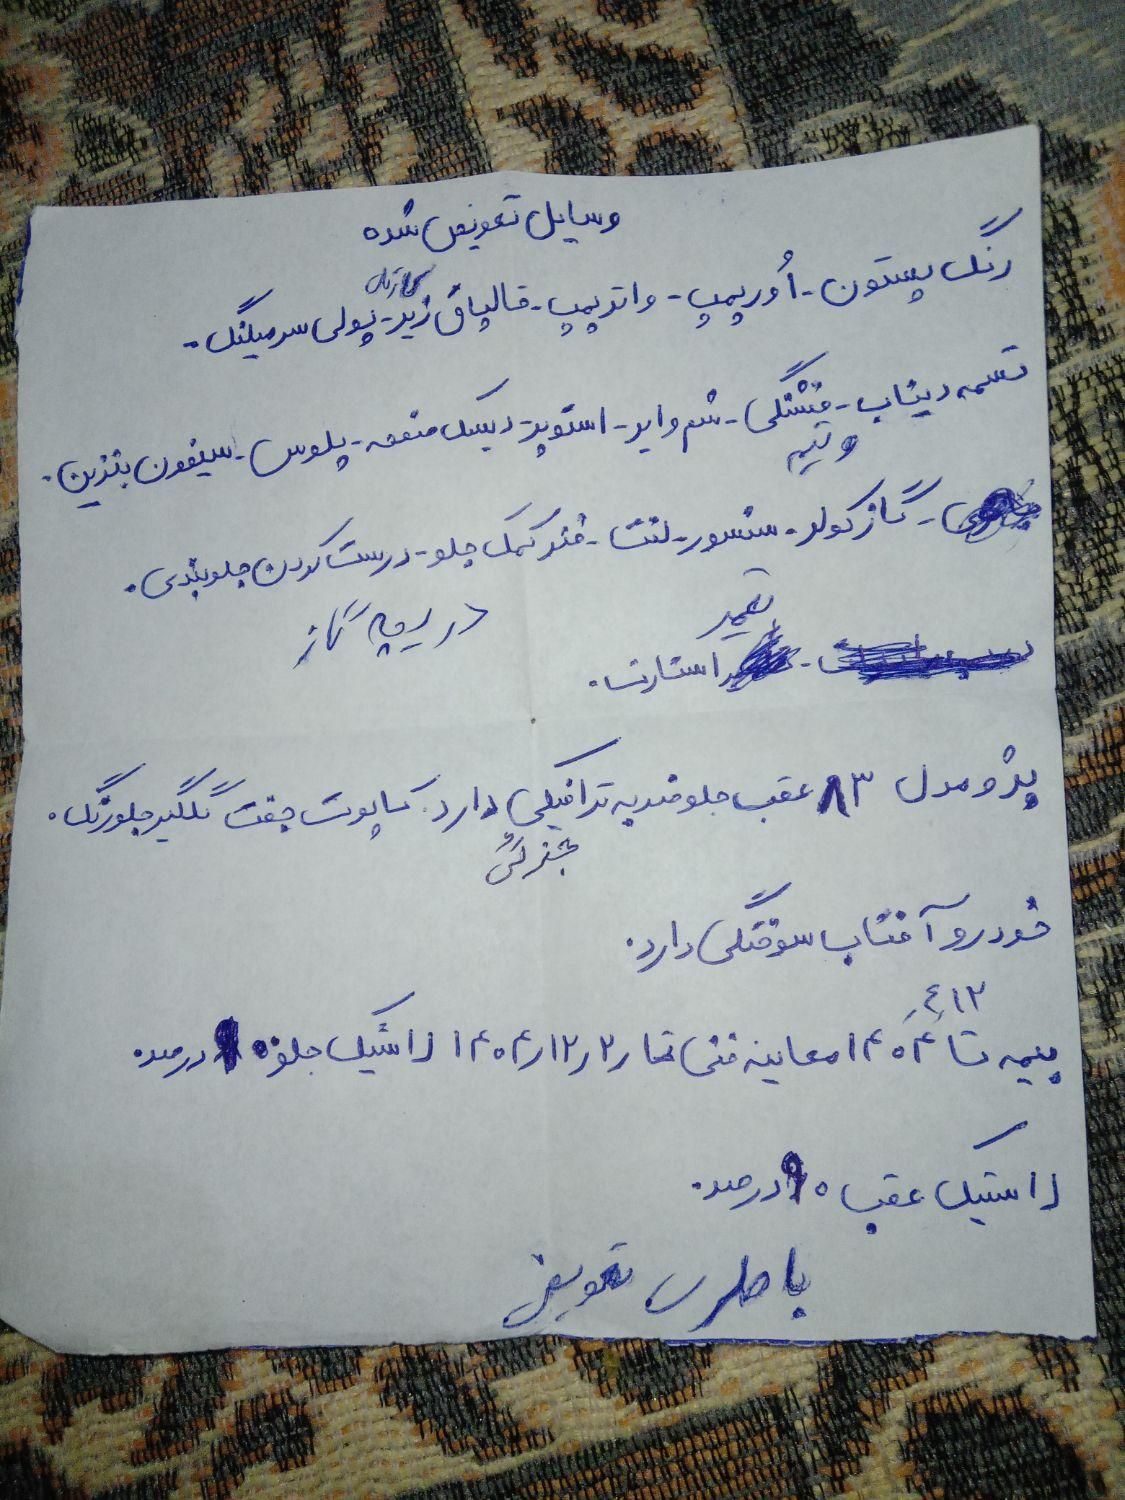 وسایل تعویض شده
رنگ پستون - اُور پمپ - واتر پمپ - قالپاق زیر - پولی سرمیلنگ -
تسمه دیناب - فشنگی - شم وایر - استوپر - دیسک صفحه - پلوس - سیفون بنزین.
و تیه
گاز کولر - سنسور - لنت - فنر کمک جلو - درست کردن جلوبندی.
تعمیر
دریچه گاز
استارت.
پژو مدل ۸۳ عقب جلو ضربه ترافیکی دارد. کاپوت جفت گلگیر جلو رنگ.
جزئی
خودرو آفتاب سوختگی دارد.
۴،۱۲
بیمه تا ۱۴۰۴ معاینه فنی تا ۱۴۰۴٫۱۲٫۲ لاستیک جلو ۹۰ درصد.
لاستیک عقب ۹۰ درصد.
باطری تعویض